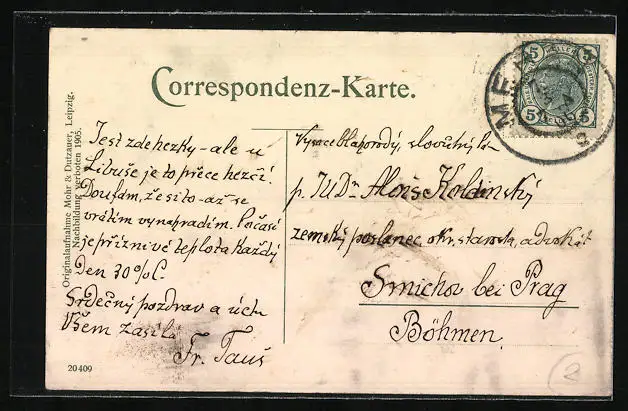 Correspondenz-Karte.
Originalaufnahme Mohr & Dutzauer, Leipzig.
Nachbildung verboten 1905.
Jest zde hezky - ale u
Libuše je to přece hezčí.
Doufám, že si to - až se
vrátím vynahradím. Počasí
je příznivé teplota každý
Den 30% C.
Srdečný pozdrav a úctu
Všem zasílá
Fr. Tauš
20409
5 5
5 5
MER
Vysoceblahorodý, slovutný
p. JUDr Alois Koldinský
zemský poslanec, okr. starosta, advokát
Smichov bei Prag
Böhmen.
2